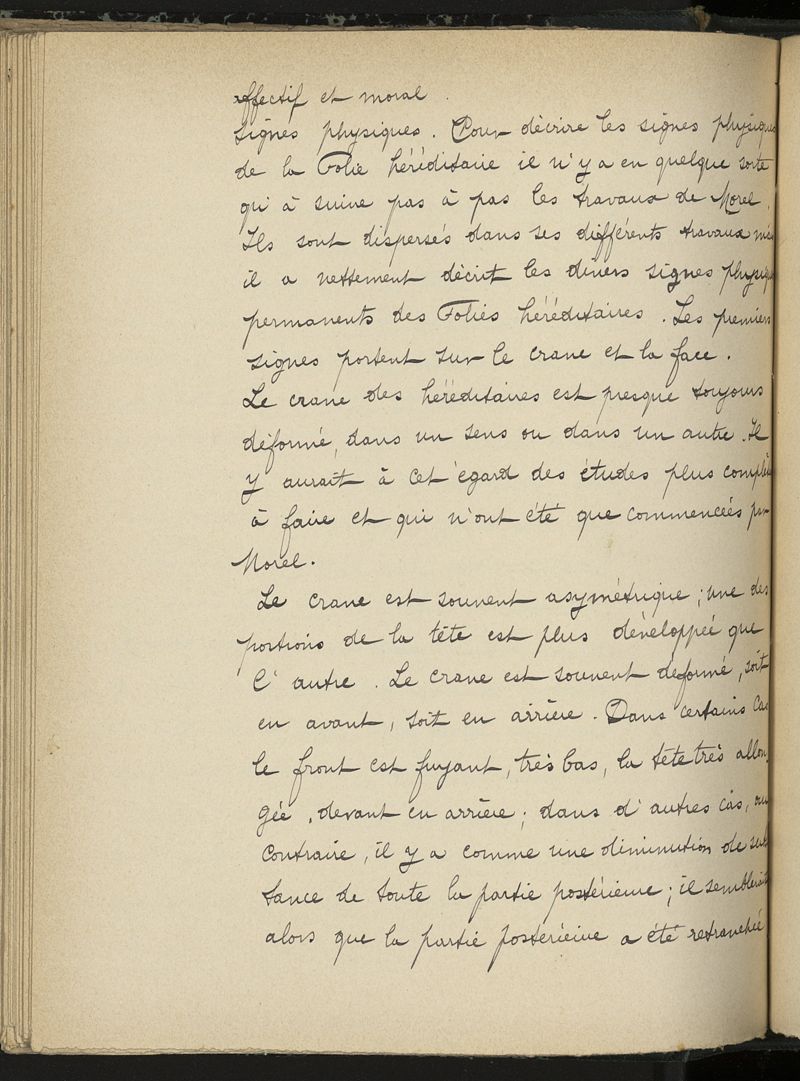 affectif et moral.
Signes physiques. Pour décrire les signes physiques
de la Folie héréditaire il n'y a en quelque sorte
qu'à suivre pas à pas les travaux de Morel.
Ils sont dispersés dans ses différents travaux
il a nettement décrit les divers signes physiq
permanents des Folies héréditaires. Les premiers
signes portent sur le crane et la face.
Le crane des héréditaires est presque toujours
déformé, dans un sens ou dans un autre. Il
y aurait à cet égard des études plus complè
à faire et qui n'ont été que commencées par
Morel.
Le crane est souvent asymétrique ; une des
portions de la tête est plus développée que
l'autre. Le crane est souvent deformé, soit
en avant, soit en arrière. Dans certains cas
le front est fuyant, très bas, la tête très allon
gée, devant en arrière ; dans d'autres cas, au
contraire, il y a comme une diminution de subs
tance de toute la partie postérieure ; il semblerait
alors que la partie postérieure a été retranchée